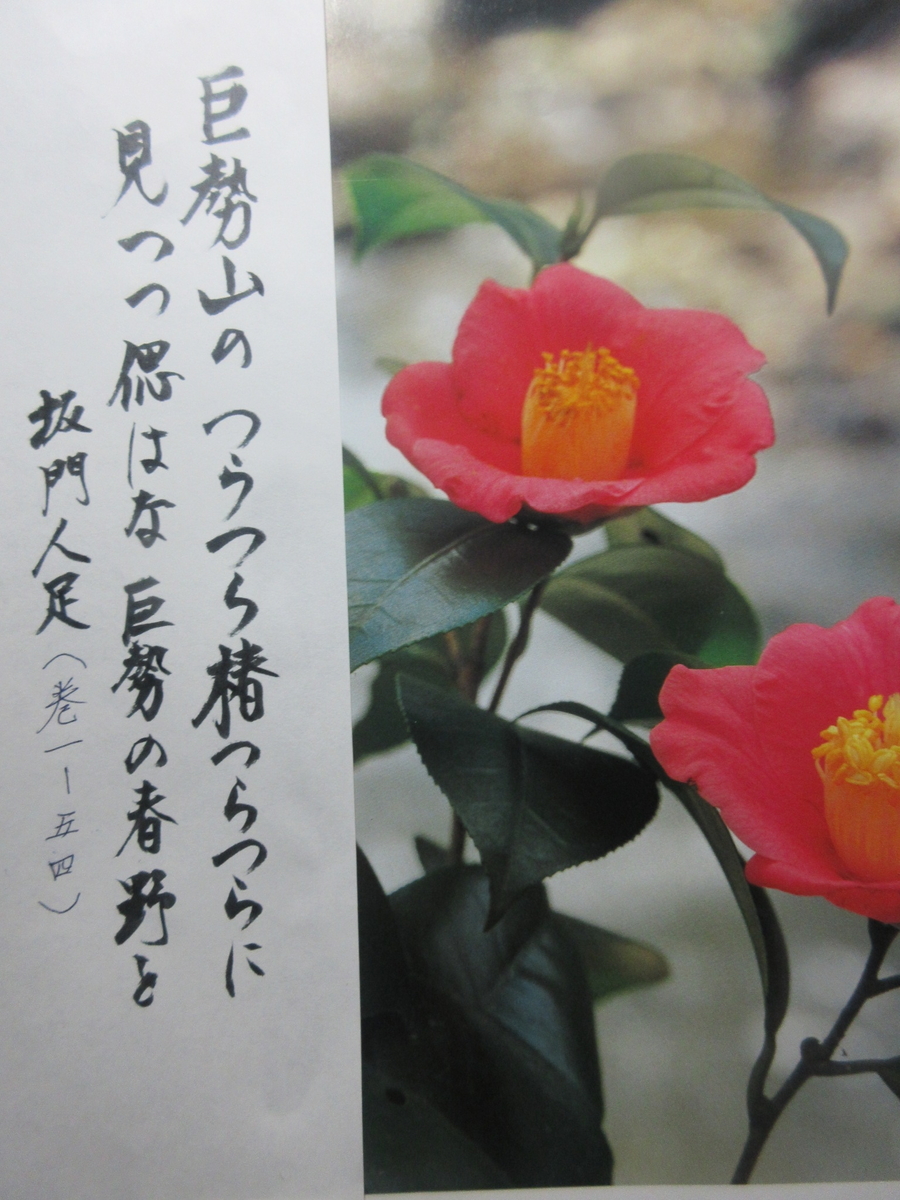 巨勢山の つらつら椿つらつらに
見つつ偲はな 巨勢の春野と
坂門人足（巻一ー五四）